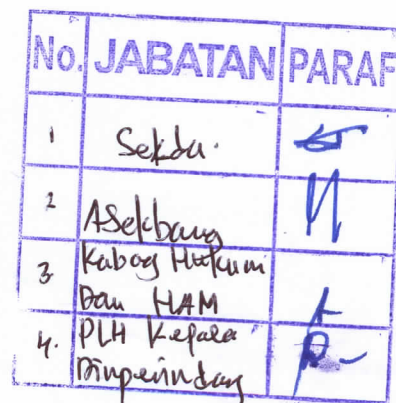 No. JABATAN PARAF
1 Sekda.
2 ASekbang
3 Kabag Hukum
Dan HAM
4. PLH Kepala
Dinperindag